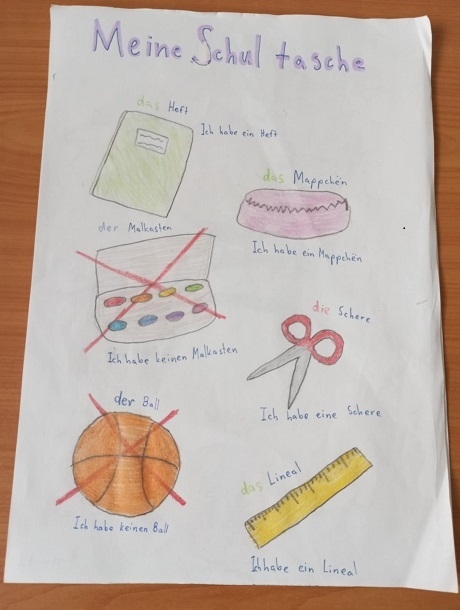 Meine Schul tasche
das Heft
Ich habe ein Heft
das Mappchën
Ich habe ein Mappchën
der Malkasten
Ich habe keinen Malkasten
die Schere
Ich habe eine Schere
der Ball
Ich habe keinen Ball
das Lineal
Ich habe ein Lineal